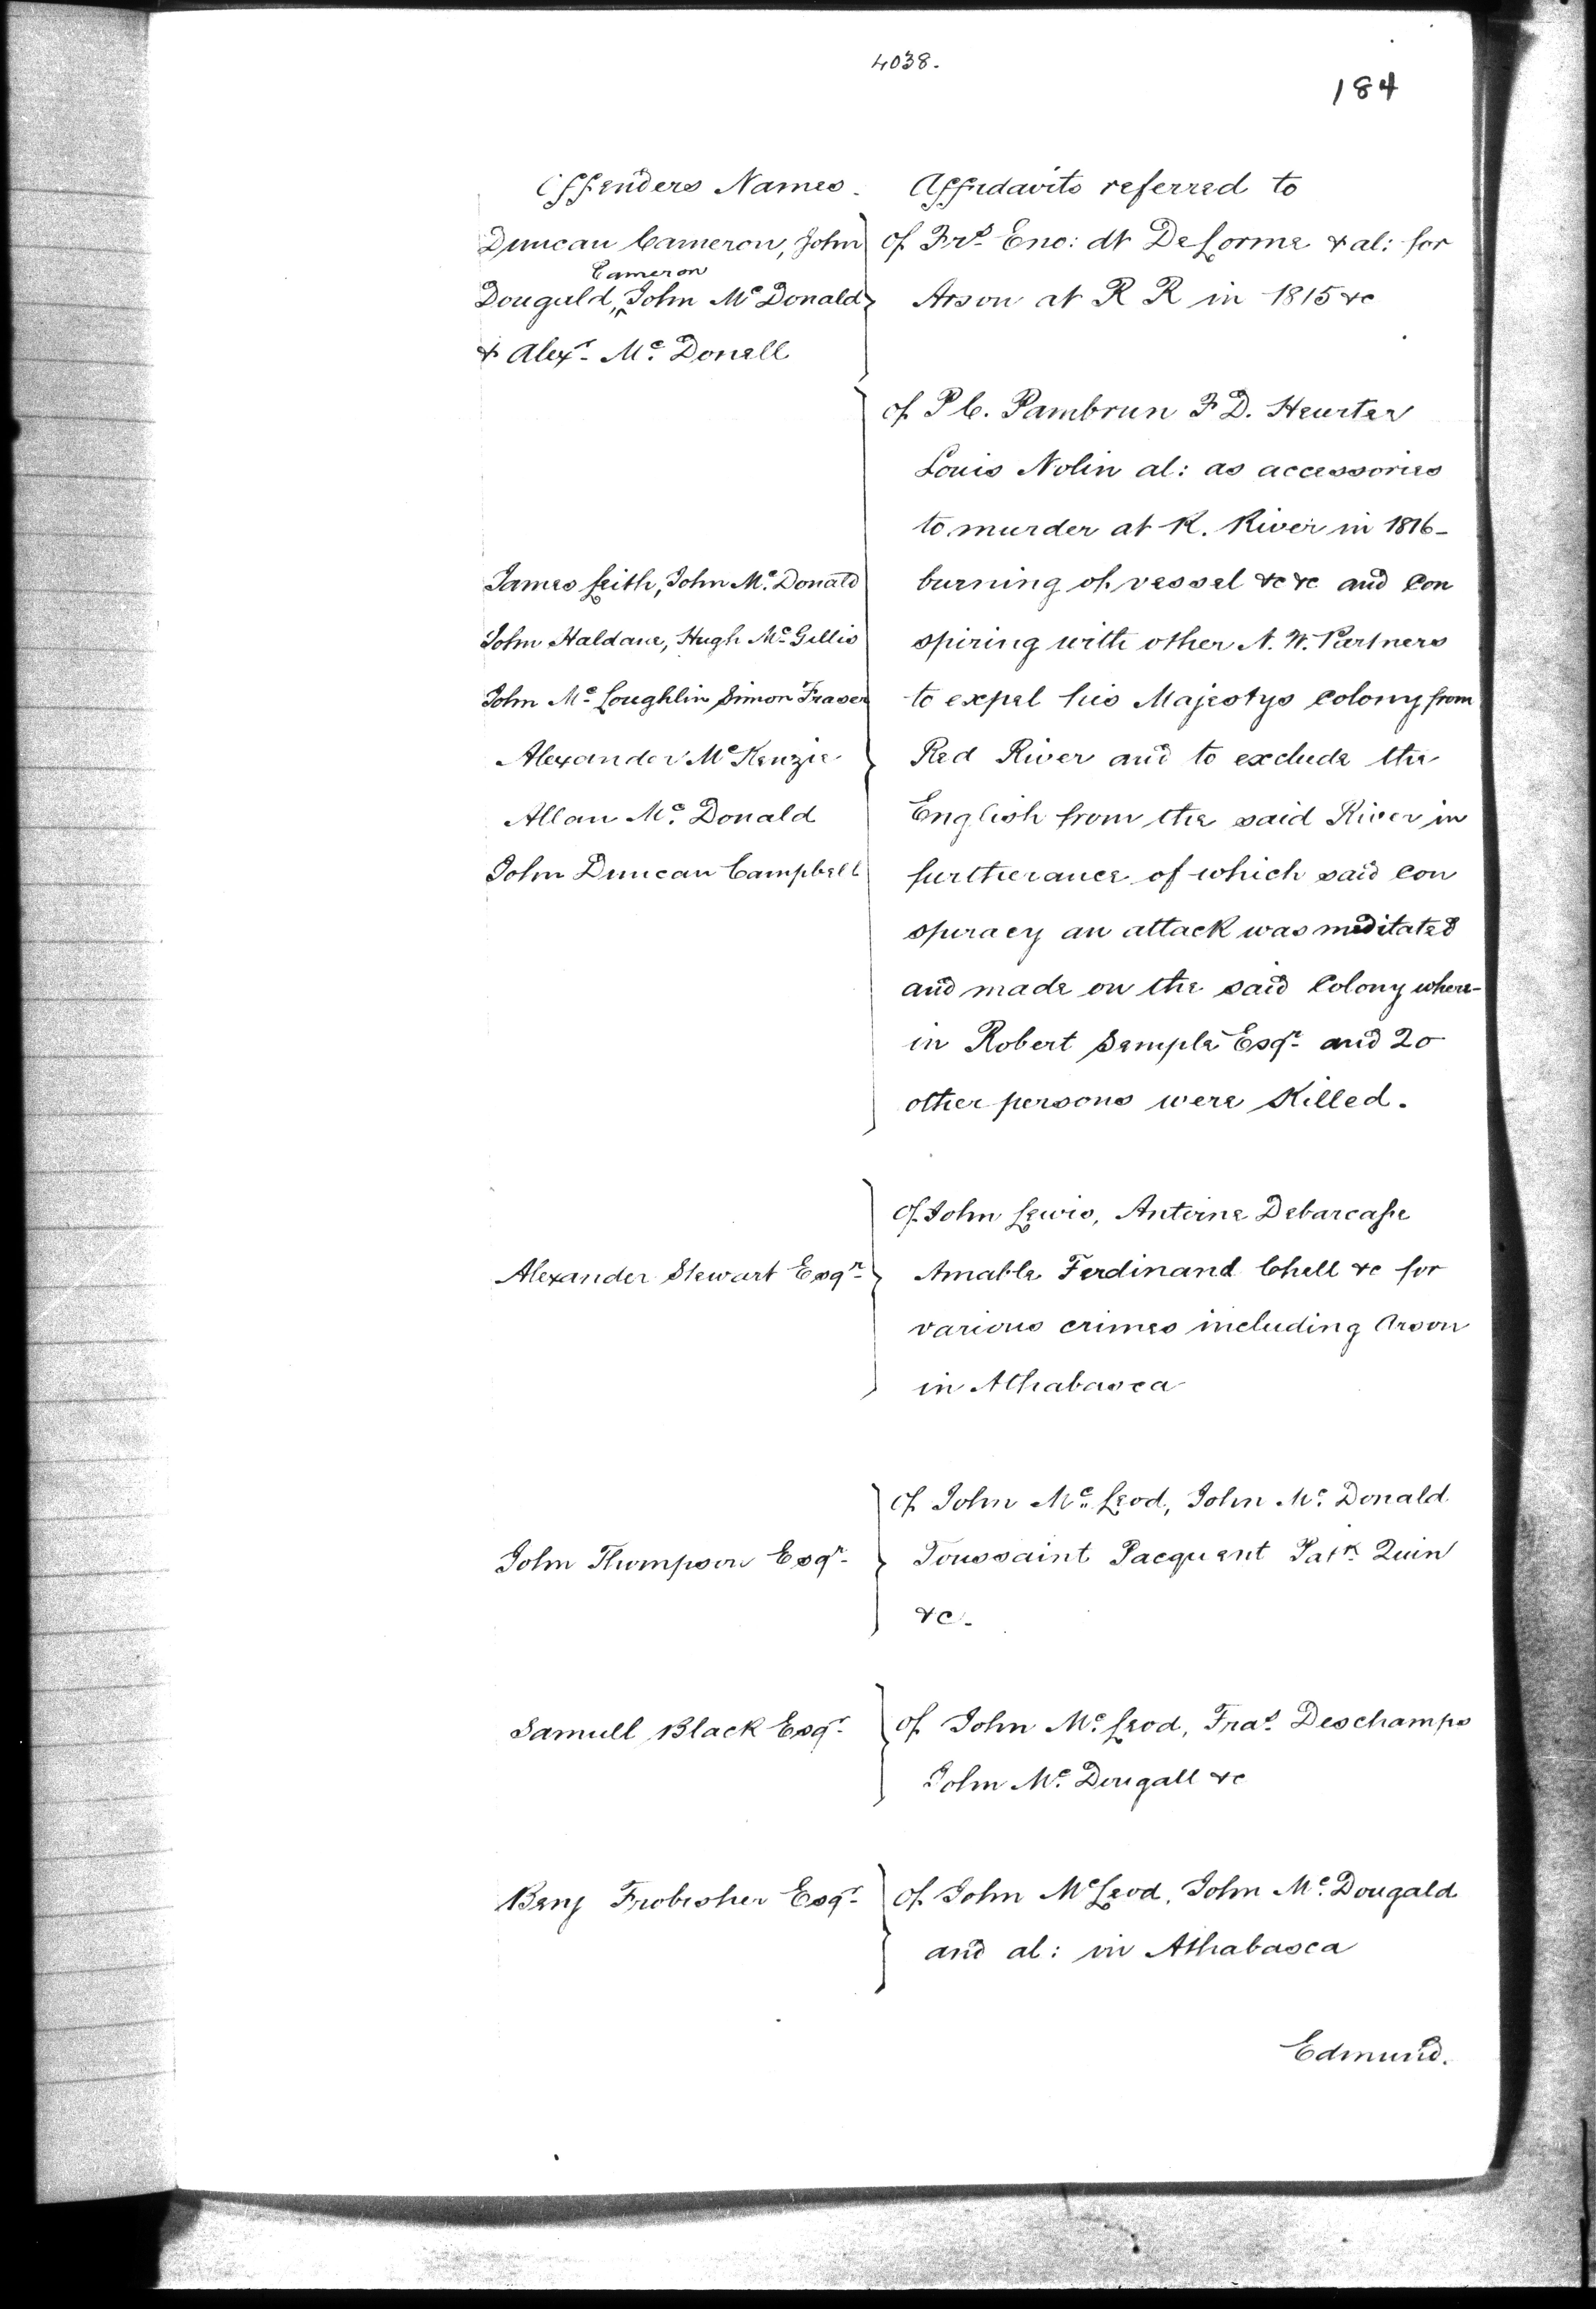 4038.
184
Offenders Names. Affidavits referred to
Duncan Cameron, John of Frs Eno: dt DeLorme & al: for
Cameron
Dougald, John Mc Donald Arson at R R in 1815 &c
& Alexr Mc Donell
of P C. Pambrun F D. Heurter
Louis Nolin al: as accessories
to murder at R. River in 1816-
James Leith, John Mc Donald burning of vessel &c &c and con
John Haldane, Hugh Mc Gillis spiring with other N. W. Partners
John Mc Loughlin Simon Fraser to expel his Majestys Colony from
Alexander Mc Kenzie Red River and to exclude the
Allan Mc Donald English from the said River in
John Duncan Campbell furtherance of which said con
spiracy an attack was meditated
and made on the said Colony where-
in Robert Semple Esqr and 20
other persons were Killed.
of John Lewis, Antoine Debarcase
Alexander Stewart Esqr Amable Ferdinand Chell &c for
various crimes including Arson
in Athabasca
of John Mc Leod, John Mc Donald
John Thompson Esqr Toussaint Pacquent Patk Quin
&c.
Samull Black Esqr of John Mc Leod, Fras Deschamps
John Mc Dougall &c
Benj Frobisher Esqr of John McLeod, John Mc Dougald
and al: in Athabasca
Edmund.